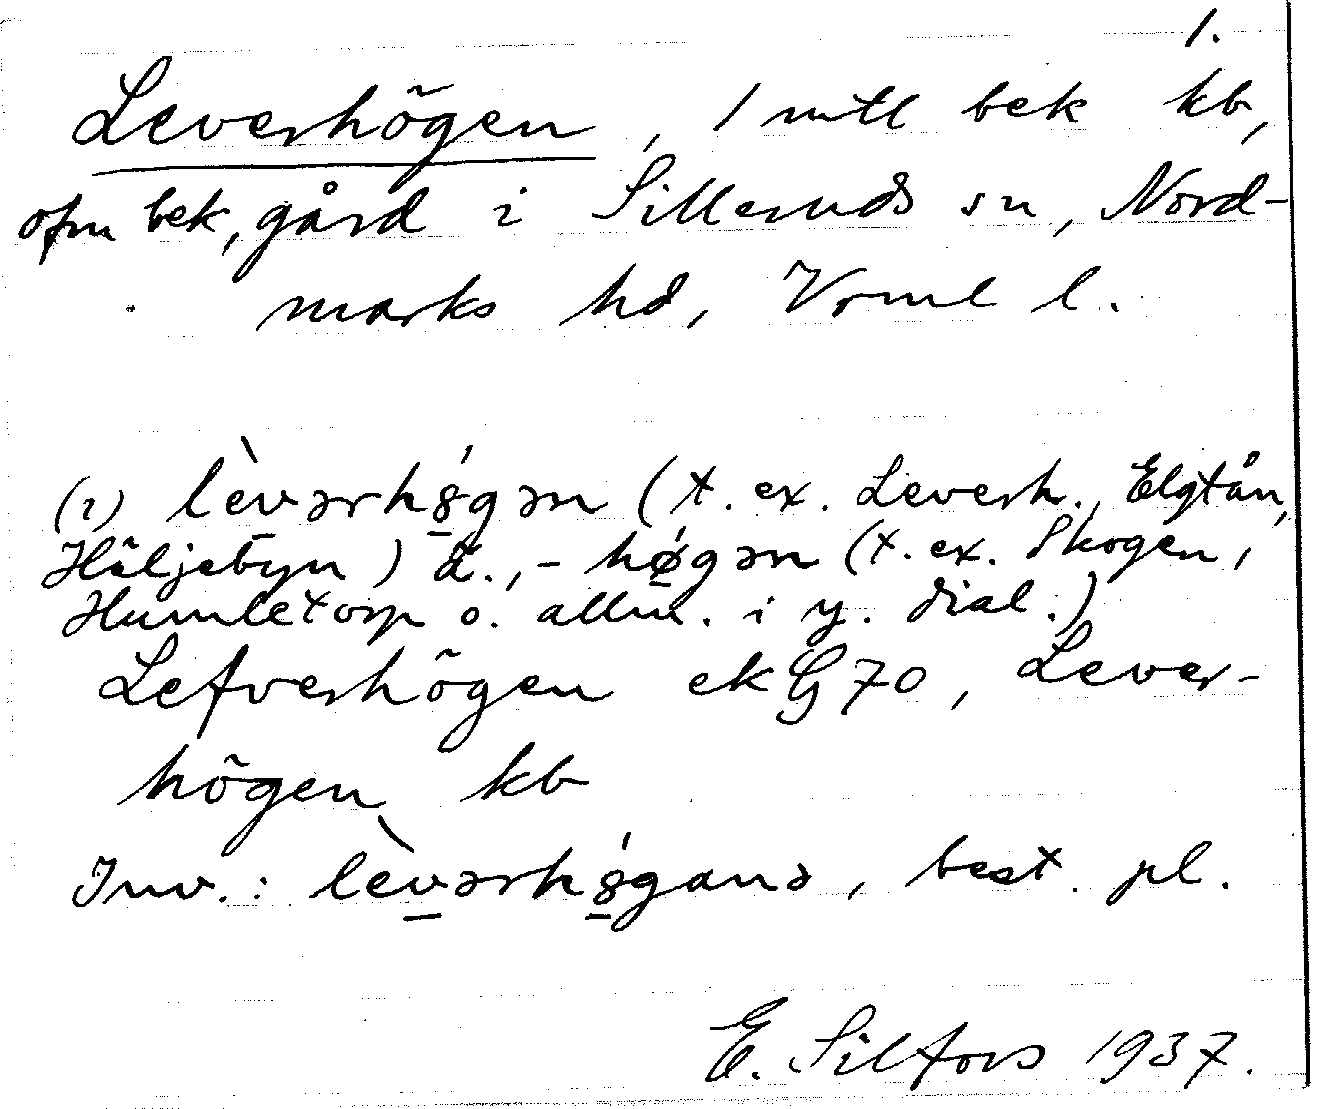 1.
Leverhögen, 1 mtl bek kb,
ofm bek, gård i Silleruds sn, Nord-
marks hd, Vrml l.
(i) lèvərhǿgən (t. ex. Leverh., Elgtån,
Häljebyn) ä., -høgən (t. ex. Skogen,
Humletorp o. allm. i y. dial.)
Lefverhögen ekG 70, Lever-
högen kb
Inv.: lèvərhǿganə, best. pl.
E. Silfors 1937.